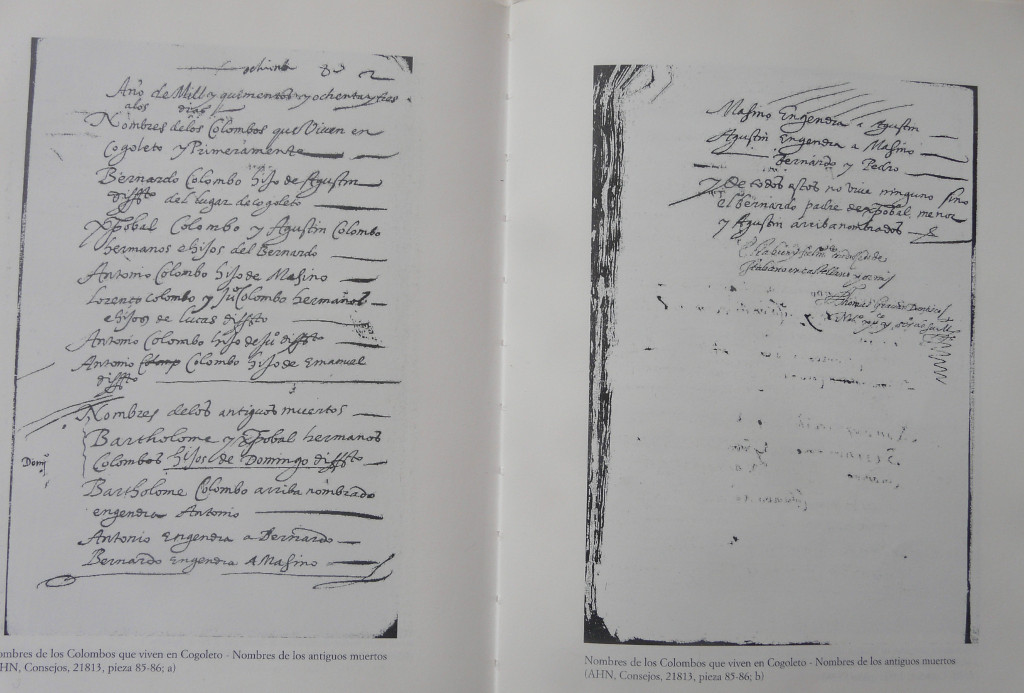 ochenta 82
Año de Mill y quinientos y ochenta y tres
a los dias
Nombres delos Colombos que Viven en
Cogoleto y Primeramente
Bernardo Colombo hijo de Agustin
diffto del lugar de cogoleto
Xpobal Colombo y Agustin Colombo
hermanos e hijos del Bernardo
Antonio Colombo hijo de Masino
Lorenzo colombo y Ju.o Colombo hermanos
e hijos de Lucas diffto
Antonio Colombo hijo de Ju.o diffto
Antonio Colombo hijo de Emanuel
diffto
Nombres delos antiguos muertos
Bartholome y Xpobal hermanos
Colombos hijos de Domingo diffto
Domi
Bartholome Colombo arriba nombrado
engendra Antonio
Antonio Engendra a Bernardo
Bernardo Engendra A Masino
ombres de los Colombos que viven en Cogoleto - Nombres de los antiguos muertos
HN, Consejos, 21813, pieza 85-86; a)
Masino Engendra a Agustin
Agustin Engendra a Masino
Bernardo y Pedro
De todos estos no vive ninguno sino
el Bernardo padre de Xpobal menor
y Agustin arriba nombrados
en castellano y
Thomas Gracian
Nombres de los Colombos que viven en Cogoleto - Nombres de los antiguos muertos
(AHN, Consejos, 21813, pieza 85-86; b)